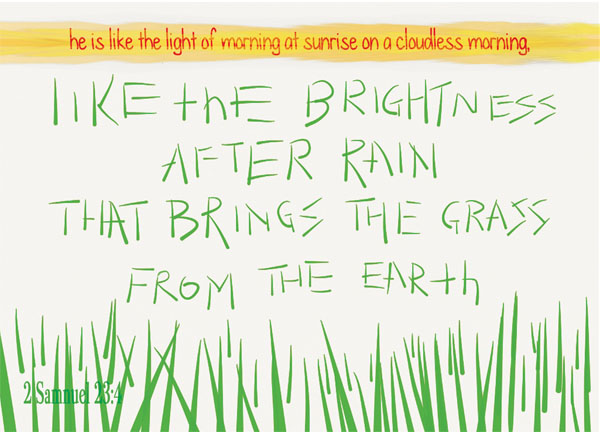 he is like the light of morning at sunrise on a cloudless morning,
lIKE thE BRIGHTNESS
AFTER RAIN
THAT BRINGS THE GRASS
FROM THE EARth
2 Samnuel 23:4